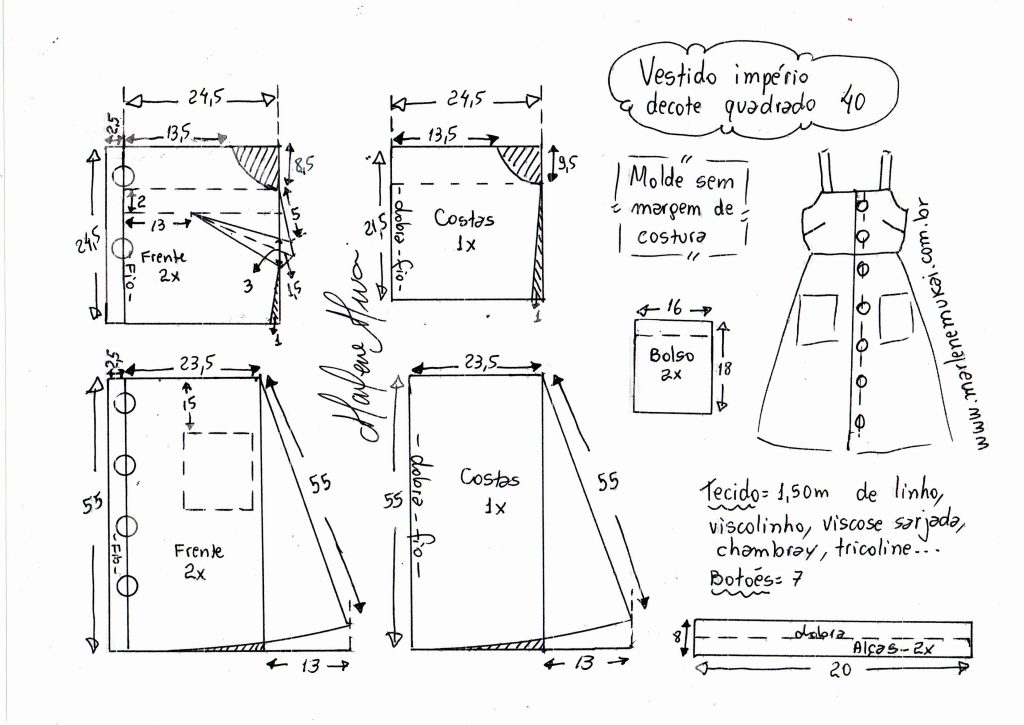 Vestido império
decote quadrado 40
24,5
2,5
13,5
8,5
24,5
2
13
5
3
1,5
Frente
2x
Fio
1
24,5
13,5
9,5
21,5
dobra - fio
Costas
1x
1
Molde sem
margem de
costura
www.marlenemukai.com.br
16
Bolso
2x
18
23,5
2,5
15
55
55
Frente
2x
Fio
13
23,5
55
55
dobra - fio
Costas
1x
13
Tecido= 1,50m de linho,
viscolinho, viscose sarjada,
chambray, tricoline...
Botões= 7
8
dobra
Alças-2x
20